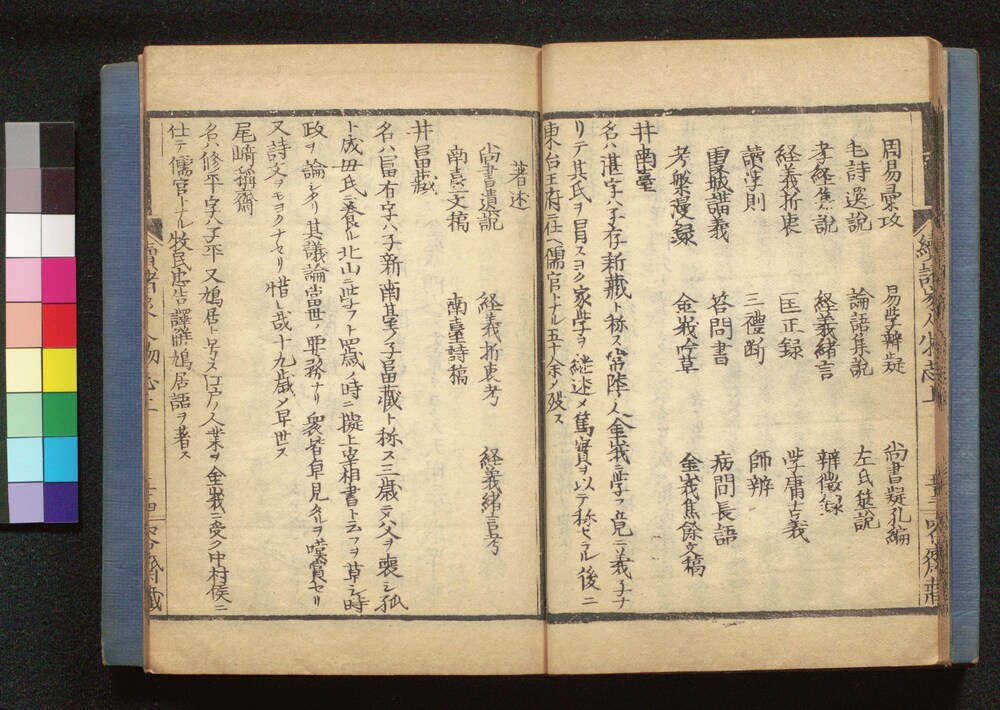 周易彙攷 易學辨疑 尚書疑孔編
毛詩選說 論語集說 左氏獎說
孝経集說 経義緒言 辨徴録
経義折衷 匡正録 學庸古義
讀学則 三禮断 師辨
霞城講義 答問書 病問長語
考槃漫録 金峩吟草 金峩焦餘文稿
井南臺
名ハ湛字ハ子存新藏ト称ス常陸ノ人金峩ニ學フ竟ニ義子ナ
リテ其氏ヲ冒スヨク家學ヲ継述メ篤實ヲ以テ称セラル後ニ
東台王府ニ仕ヘ儒官トナル五十余メ歿ス
著述
尚書遺說 経義折衷考 経義緒言考
南臺文稿 南臺詩稿
井富藏
名ハ富有字ハ子新南臺ノ子富藏ト称ス三歳ニメ父ヲ喪シ孤
ト成毋氏ニ養ル北山ニ學フト四歳ノ時ニ擬上宰相書ト云フヲ草シ時
政ヲ論シタリ其議論當世ノ要務ナリ衆皆卓見タルヲ嘆賞セリ
又詩文ヲモヨクナセリ惜哉十九歳メ早世ス
尾﨑稱齋
名ハ修平字ハ子平又鳩居ト号ス江戸ノ人業ヲ金峩ニ受ク中村侯ニ
仕テ儒官トナル牧民忠告譯鳩居語ヲ著ス